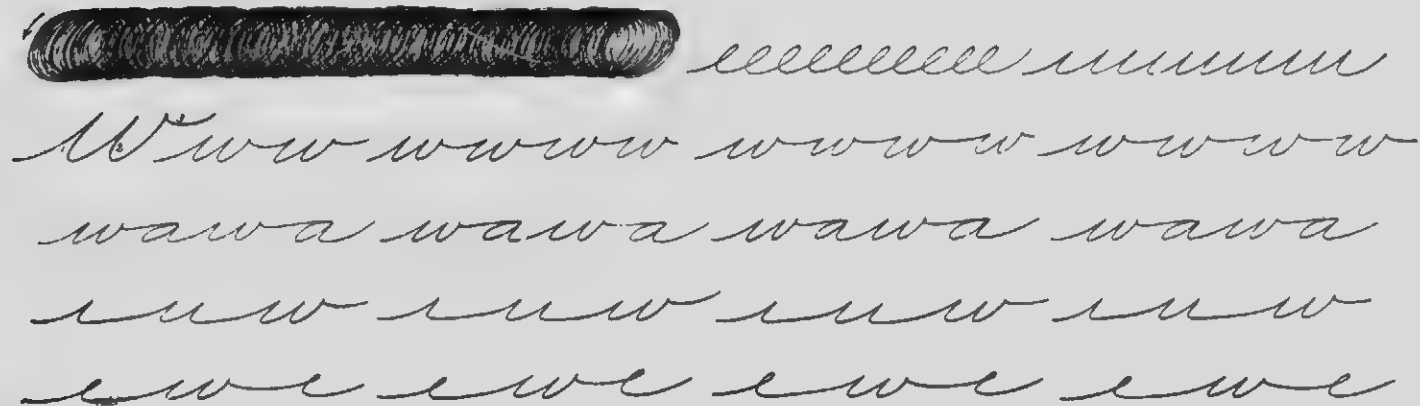 eeeeeeeee
www wwww wwww wwww
wawa wawa wawa wawa
ıuw ıuw ıuw ıuw
ewe ewe ewe ewe